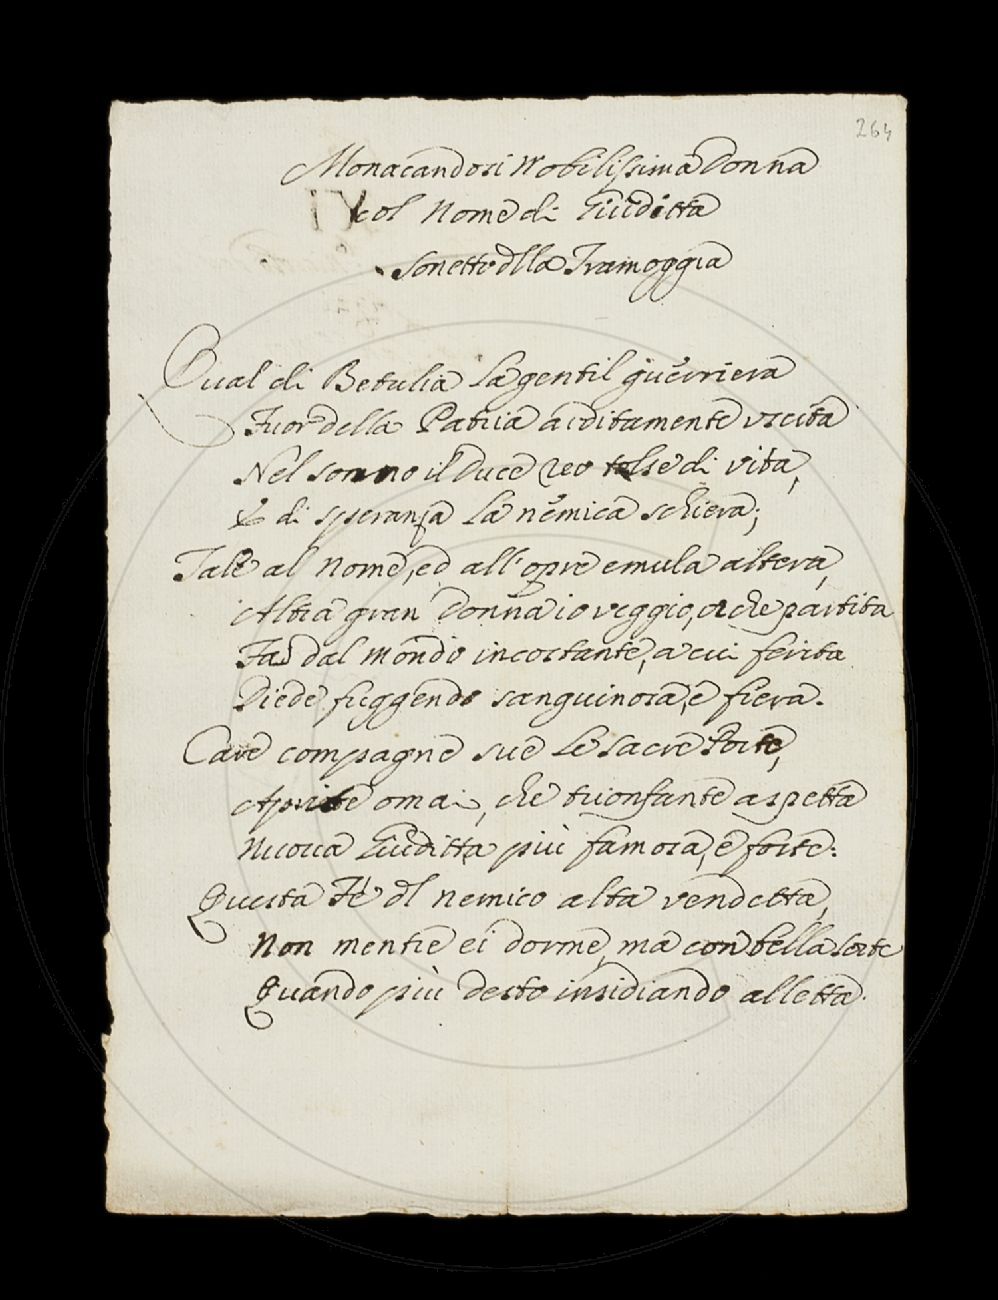 264
Monacandosi Nobilissima Donna
col Nome di Giuditta
Sonetto dlla Tramoggia
Qual di Betulia la gentil guerriera
Fuor della Patria arditamente uscita
Nel sonno il Duce reo tolse di vita,
E di speranza la nemica schiera;
Tale al nome, ed all'opre emula altera,
Altra gran Donna io veggio, che partita
Fa dal mondo incostante, a cui ferita
Diede fuggendo sanguinosa, e fiera.
Care compagne sue le sacre Porte,
Aprite omai, che trionfante aspetta
Nuova Giuditta più famosa, e forte.
Questa Fè dl nemico alta vendetta,
Non mentre ei dorme, ma con bella sorte
Quando più desto insidiando alletta.